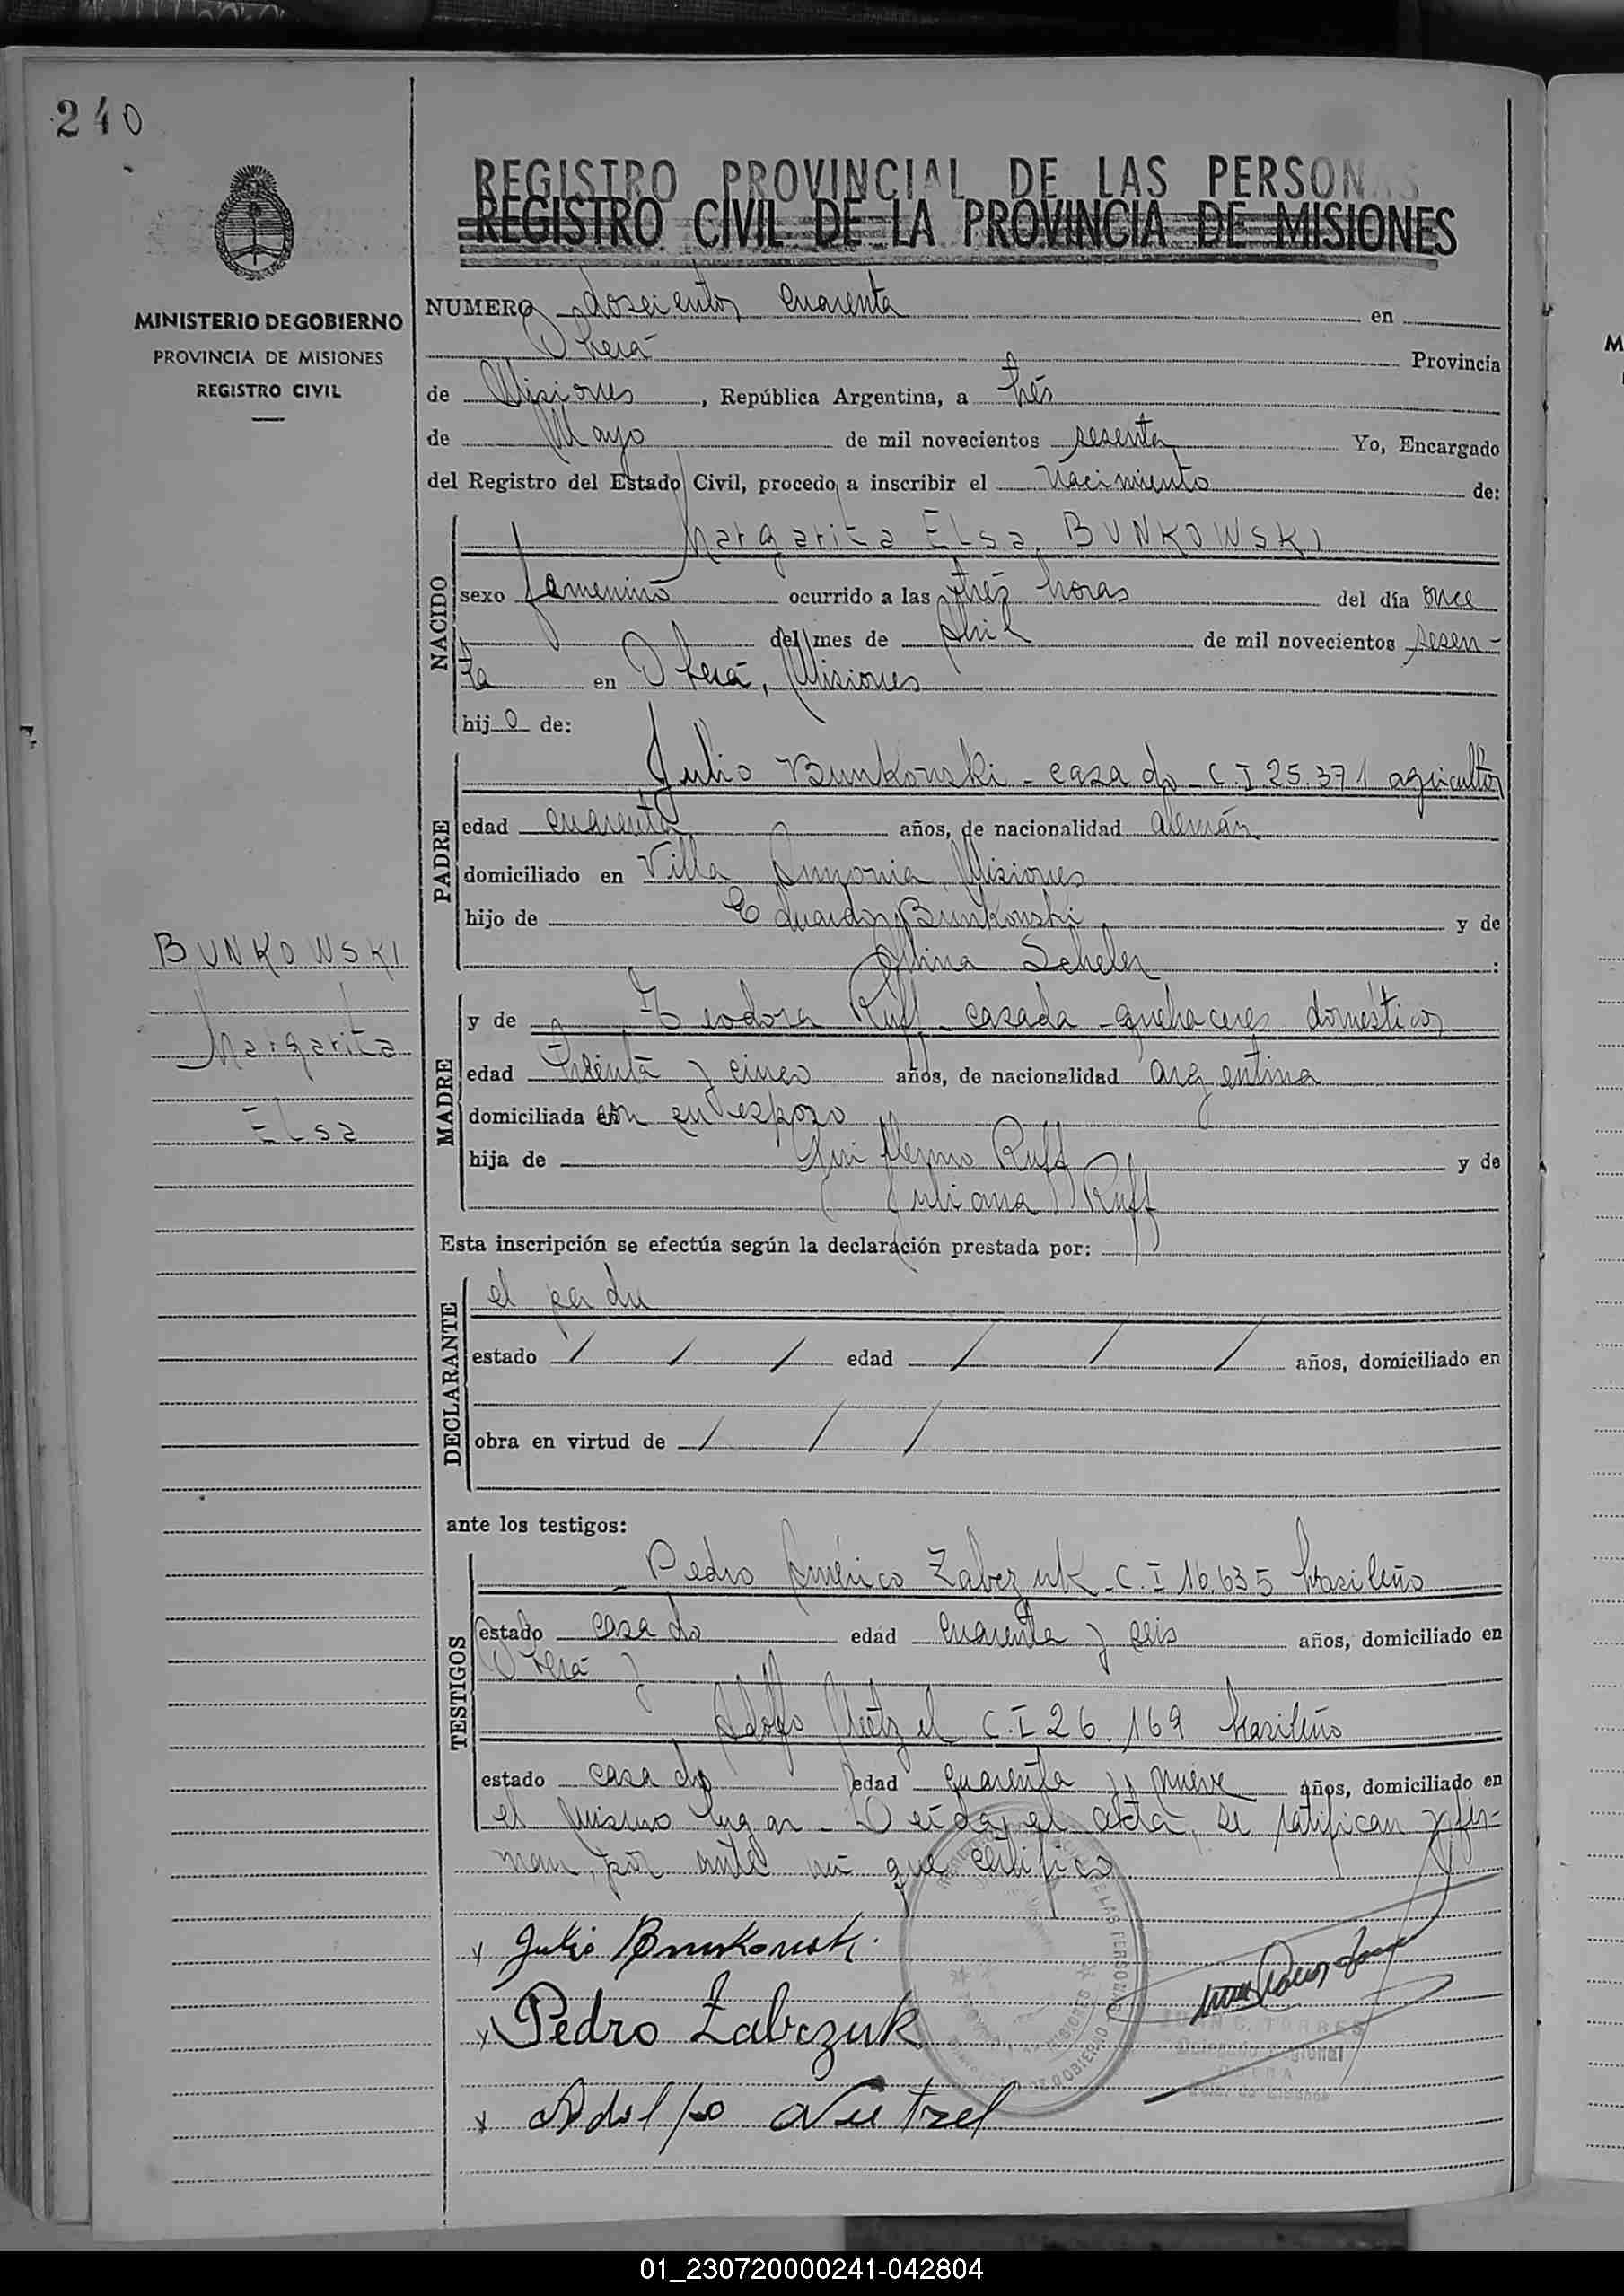 240
REGISTRO PROVINCIAL DE LAS PERSONAS
REGISTRO CIVIL DE LA PROVINCIA DE MISIONES
MINISTERIO DE GOBIERNO
PROVINCIA DE MISIONES
REGISTRO CIVIL
NUMERO doscientos cuarenta en
Oberá Provincia
de Misiones, República Argentina, a tres
de Mayo de mil novecientos sesenta Yo, Encargado
del Registro del Estado Civil, procedo a inscribir el nacimiento de:
NACIDO
Margarita Elsa BUNKOWSKI
sexo femenino ocurrido a las tres horas del día once
del mes de Abril de mil novecientos sesen-
ta en Oberá, Misiones
hijo de:
PADRE
Julio Bunkowski - casado - C.I 25.371 agricultor
edad cuarenta años, de nacionalidad alemán
domiciliado en Villa Misiones
hijo de Eduardo Bunkowski y de
Scheler
BUNKOWSKI
Margarita
Elsa
MADRE
y de Teodora Ruff - casada - quehaceres domésticos
edad treinta y cinco años, de nacionalidad argentina
domiciliada en con su esposo
hija de Guillermo Ruff y de
Juliana Ruff
Esta inscripción se efectúa según la declaración prestada por:
DECLARANTE
el padre
estado / / / edad / / / años, domiciliado en
obra en virtud de / / /
ante los testigos:
TESTIGOS
Pedro Américo Zabczuk - C.I 16.635 brasileño
estado casado edad cuarenta y seis años, domiciliado en
Oberá y
Adolfo C.I 26.169 brasileño
estado casado edad cuarenta y nueve años, domiciliado en
el mismo lugar - Leída el acta, se ratifican y fir-
man por ante mí que certifico
x Julio Bunkowski.
x Pedro Zabczuk
x Adolfo
JUAN C. TORRES
Delegado Regional
OBERA
01_230720000241-042804